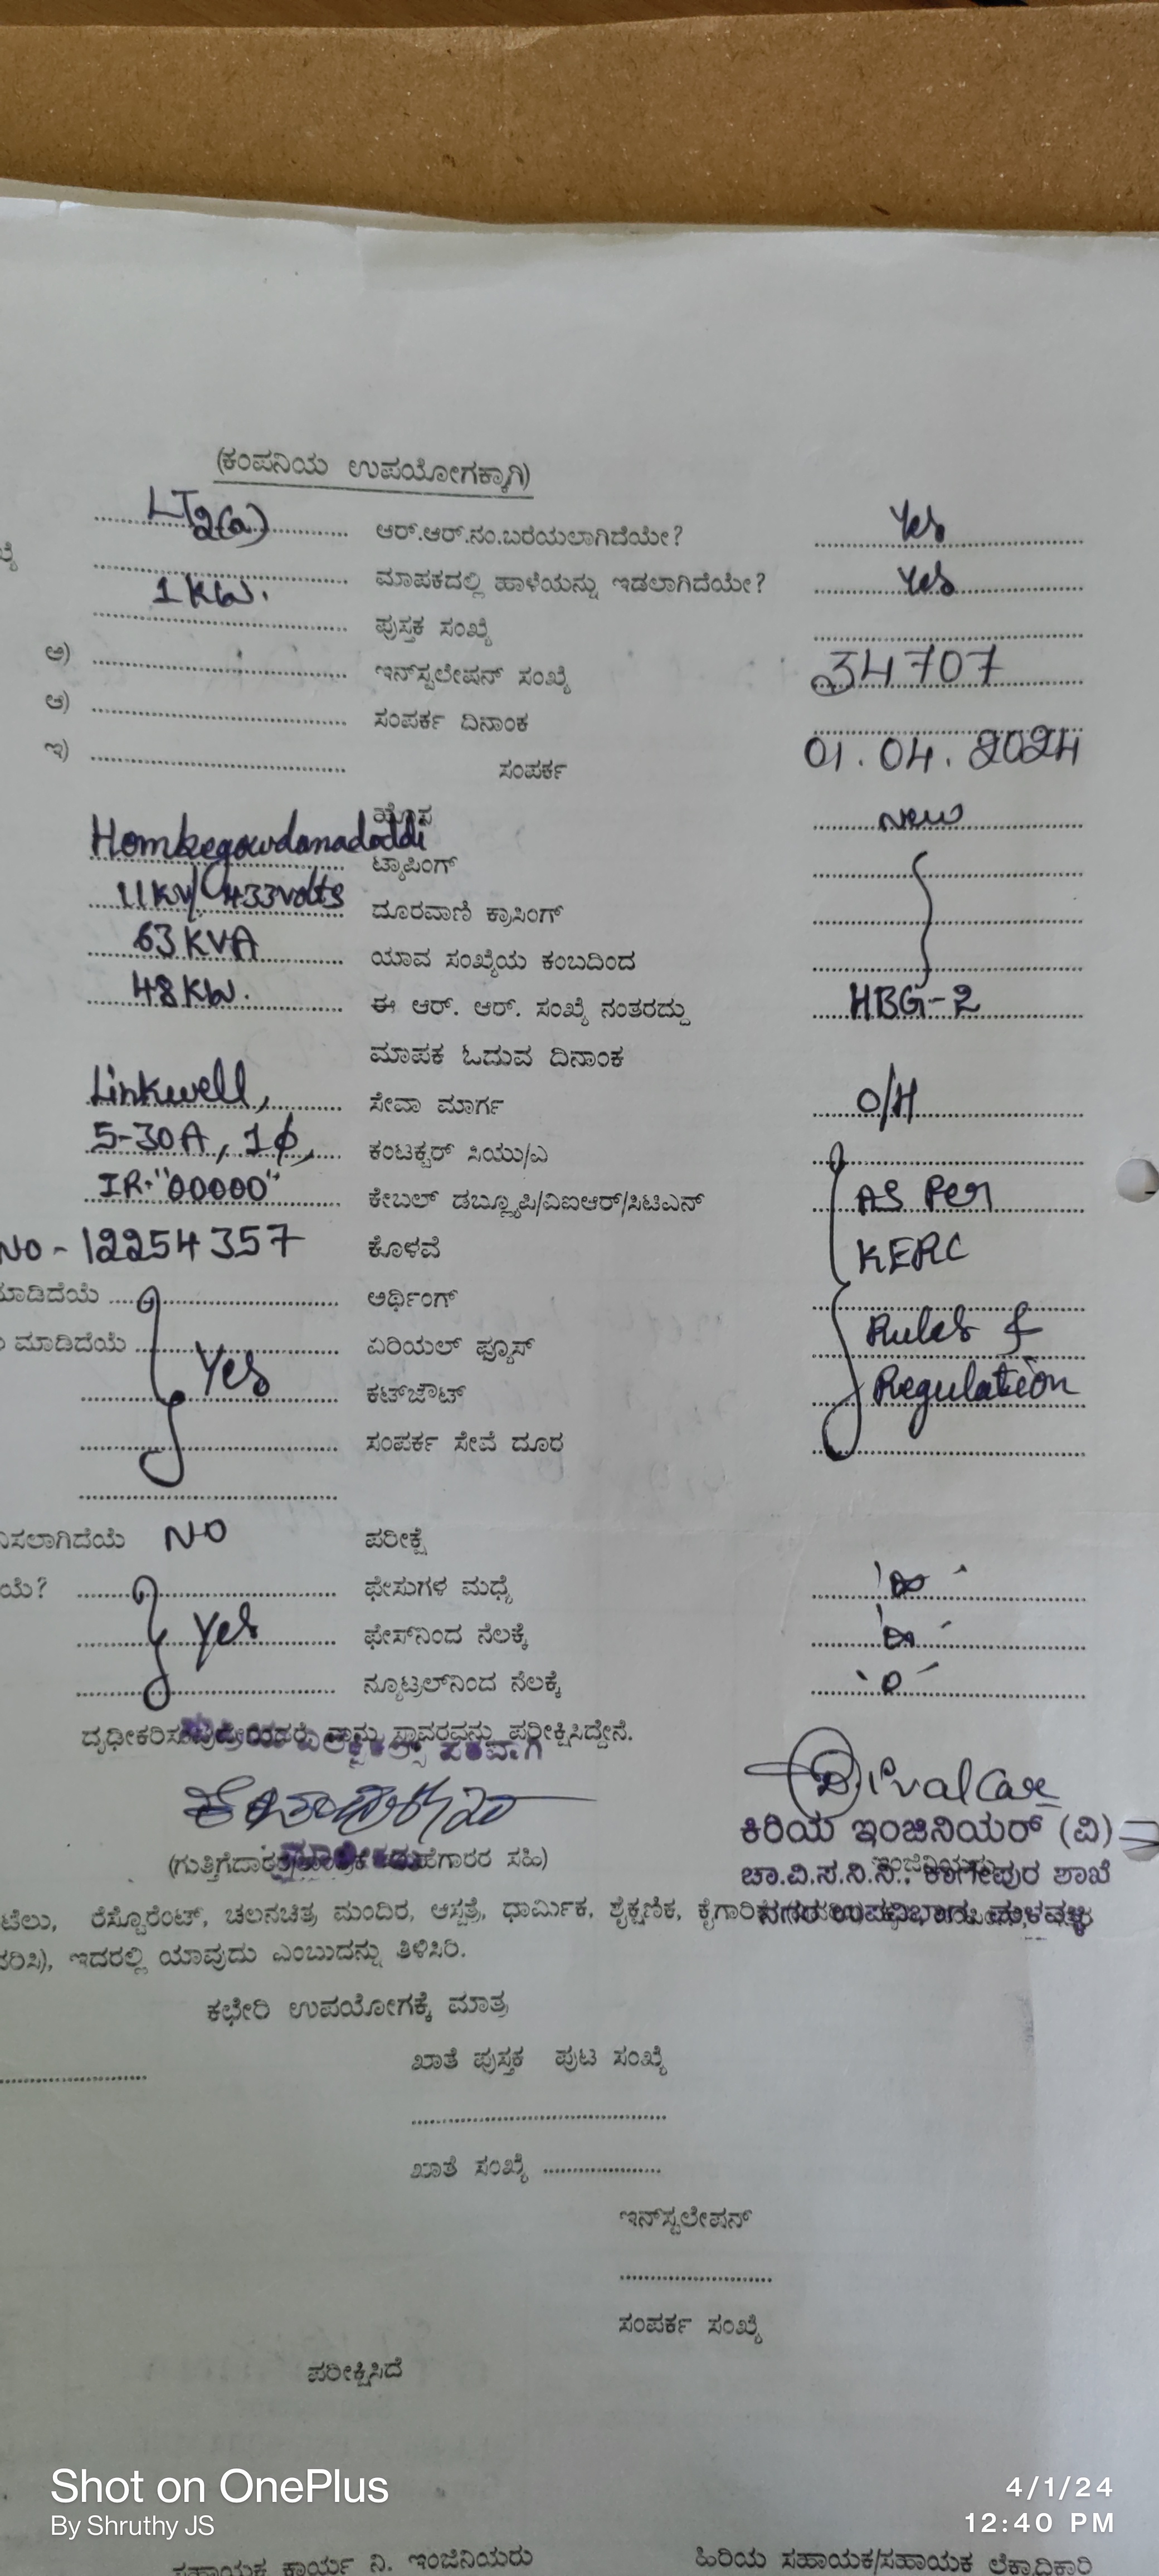 (ಕಂಪನಿಯ ಉಪಯೋಗಕ್ಕಾಗಿ)
LT2(a) ಆರ್.ಆರ್.ನಂ.ಬರೆಯಲಾಗಿದೆಯೇ? Yes
1KW. ಮಾಪಕದಲ್ಲಿ ಹಾಳೆಯನ್ನು ಇಡಲಾಗಿದೆಯೇ? Yes
ಪುಸ್ತಕ ಸಂಖ್ಯೆ
ಅ) ಇನ್‌ಸ್ಟಲೇಷನ್ ಸಂಖ್ಯೆ 34707
ಆ) ಸಂಪರ್ಕ ದಿನಾಂಕ
ಇ) ಸಂಪರ್ಕ 01.04.2024
ಹೊಸ New
Hombegowdanadoddi ಟ್ಯಾಪಿಂಗ್
11KV/433volts ದೂರವಾಣಿ ಕ್ರಾಸಿಂಗ್
63KVA ಯಾವ ಸಂಖ್ಯೆಯ ಕಂಬದಿಂದ
48KW. ಈ ಆರ್. ಆರ್. ಸಂಖ್ಯೆ ನಂತರದ್ದು HBG-2
ಮಾಪಕ ಓದುವ ದಿನಾಂಕ
Linkwell, ಸೇವಾ ಮಾರ್ಗ O/H
5-30A, 1ϕ, ಕಂಟಕ್ಟರ್ ಸಿಯು/ಎ
IR-"00000" ಕೇಬಲ್ ಡಬ್ಲ್ಯೂಪಿ/ವಿಐಆರ್/ಸಿಟಿಎನ್ AS Per
NO - 12254357 ಕೊಳವೆ KERC
ಮಾಡಿದೆಯೆ ಅರ್ಥಿಂಗ್
ಮಾಡಿದೆಯೆ ಏರಿಯಲ್ ಫ್ಯೂಸ್ Rules &
Yes ಕಟ್‌ಔಟ್ Regulation
ಸಂಪರ್ಕ ಸೇವೆ ದೂರ
ಸಲಾಗಿದೆಯೆ NO ಪರೀಕ್ಷೆ
ಯೆ? ಫೇಸುಗಳ ಮಧ್ಯೆ ∞
Yes ಫೇಸ್‌ನಿಂದ ನೆಲಕ್ಕೆ
ನ್ಯೂಟ್ರಲ್‌ನಿಂದ ನೆಲಕ್ಕೆ 0
ನಾನು ಸ್ಥಾವರವನ್ನು ಪರೀಕ್ಷಿಸಿದ್ದೇನೆ.
ಕಿರಿಯ ಇಂಜಿನಿಯರ್ (ವಿ)
ಸಹಿ)
ಚಾ.ವಿ.ಸ.ನಿ.ನಿ., ಕಾಗೇಪುರ ಶಾಖೆ
ಟೆಲು, ರೆಸ್ಟೊರೆಂಟ್, ಚಲನಚಿತ್ರ ಮಂದಿರ, ಆಸ್ಪತ್ರೆ, ಧಾರ್ಮಿಕ, ಶೈಕ್ಷಣಿಕ, ಉಪವಿಭಾಗ, ಮಳವಳ್ಳಿ
ವರಿಸಿ), ಇದರಲ್ಲಿ ಯಾವುದು ಎಂಬುದನ್ನು ತಿಳಿಸಿರಿ.
ಕಛೇರಿ ಉಪಯೋಗಕ್ಕೆ ಮಾತ್ರ
ಖಾತೆ ಪುಸ್ತಕ ಪುಟ ಸಂಖ್ಯೆ
ಖಾತೆ ಸಂಖ್ಯೆ
ಇನ್‌ಸ್ಟಲೇಷನ್
ಸಂಪರ್ಕ ಸಂಖ್ಯೆ
ಪರೀಕ್ಷಿಸಿದೆ
Shot on OnePlus
By Shruthy JS
4/1/24
12:40 PM
ಸಹಾಯಕ ಕಾರ್ಯ ನಿ. ಇಂಜಿನಿಯರು ಹಿರಿಯ ಸಹಾಯಕ/ಸಹಾಯಕ ಲೆಕ್ಕಾಧಿಕಾರಿ